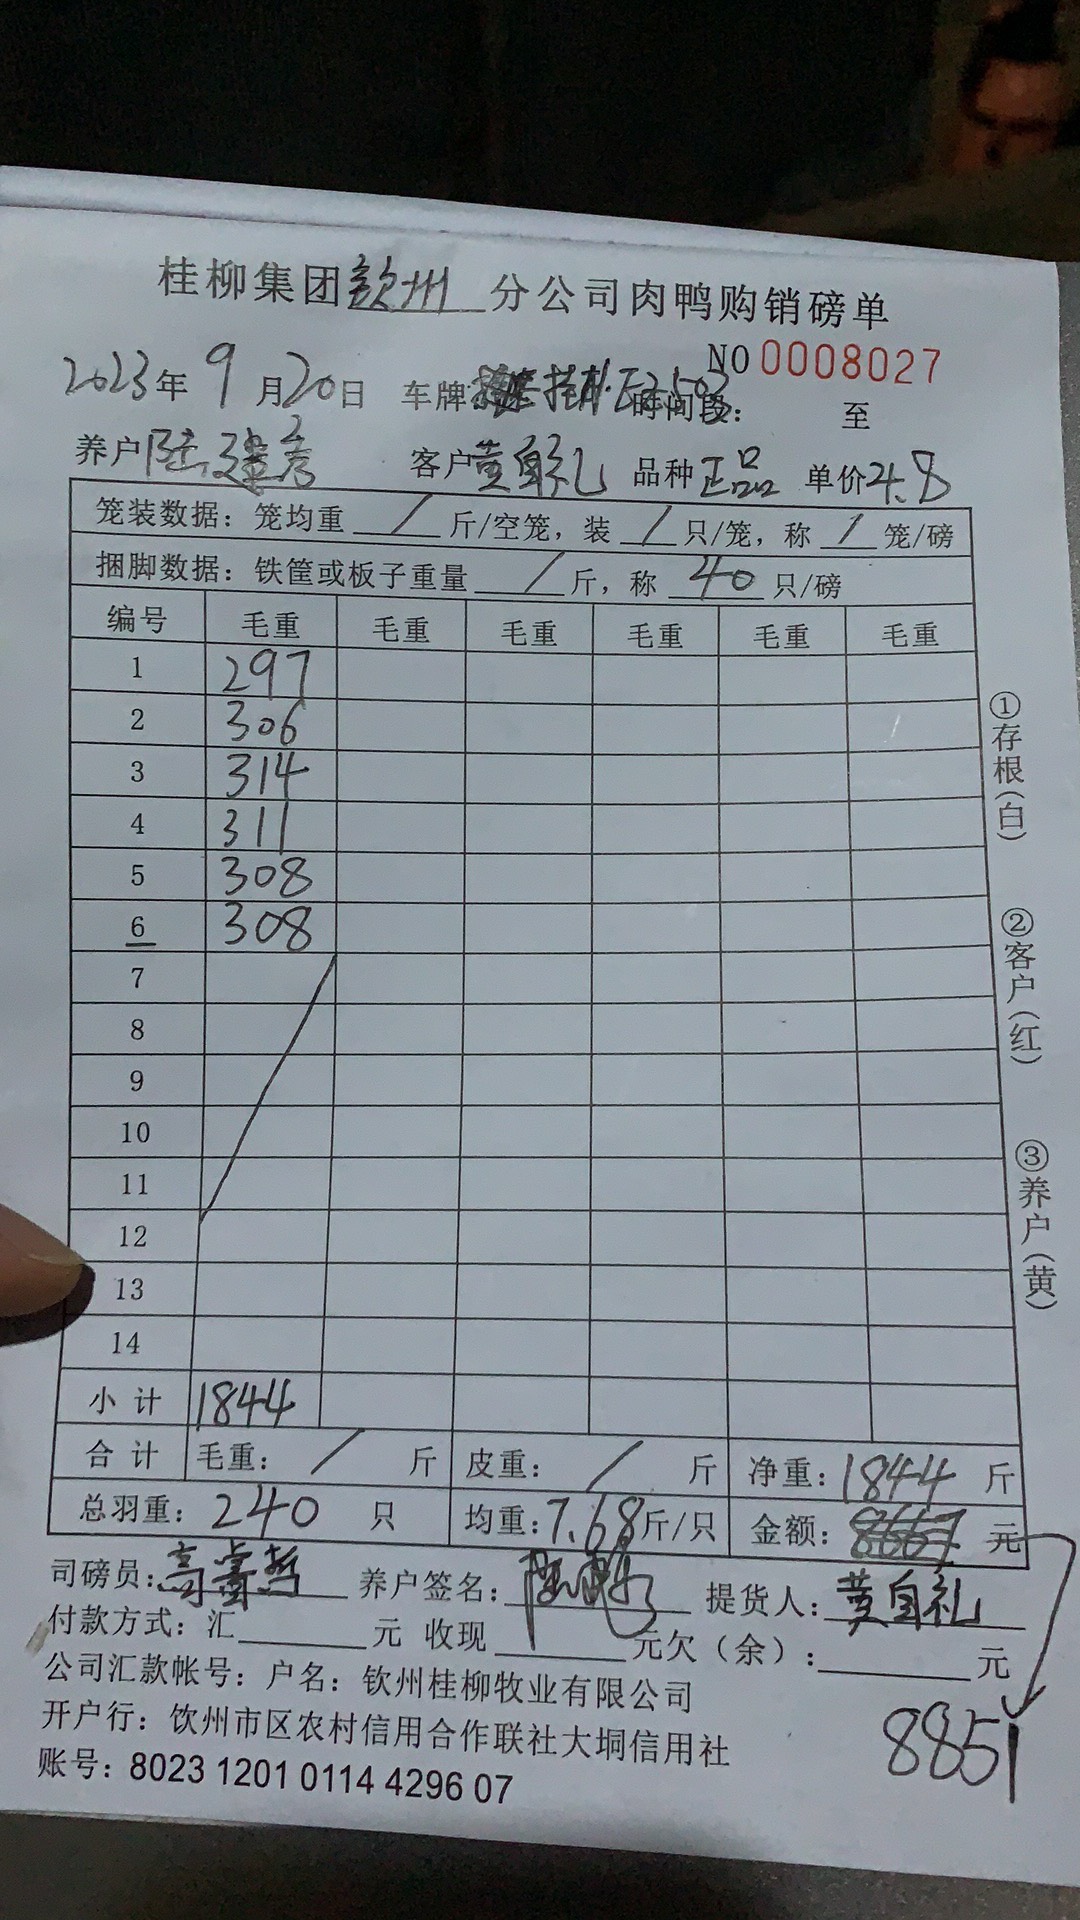 桂柳集团钦州分公司肉鸭购销磅单
NO 0008027
2023年9月20日 车牌 时间段: 至
养户陆建彦 客户黄自礼 品种正品 单价4.8
笼装数据：笼均重/斤/空笼，装/只/笼，称/笼/磅
捆脚数据：铁筐或板子重量/斤，称40只/磅
编号 毛重 毛重 毛重 毛重 毛重 毛重
1 297
2 306
3 314
4 311
5 308
6 308
7
8
9
10
11
12
13
14
小计 1844
合计 毛重：/斤 皮重：/斤 净重：1844斤
总羽重：240只 均重：7.68斤/只 金额：元
司磅员： 养户签名： 提货人：黄自礼
付款方式：汇 元 收现 元欠（余）： 元
8851
公司汇款帐号：户名：钦州桂柳牧业有限公司
开户行：钦州市区农村信用合作联社大垌信用社
账号：8023 1201 0114 4296 07
①存根(白)
②客户(红)
③养户(黄)